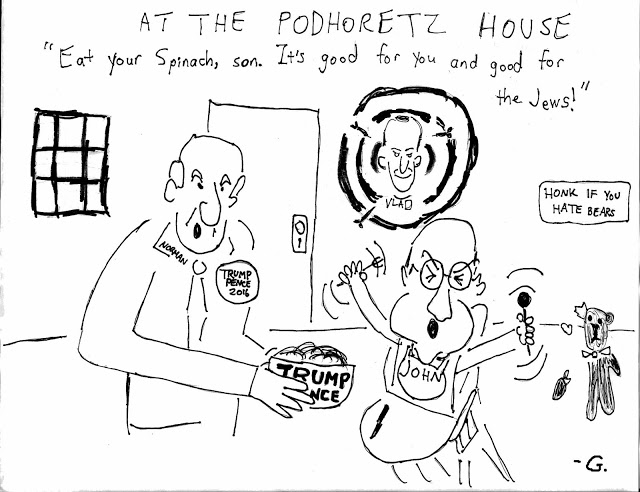 AT THE PODHORETZ HOUSE
"Eat your Spinach, son. It's good for you and good for
the Jews!"
VLAD
HONK IF YOU
HATE BEARS
NORMAN
TRUMP
PENCE
2016
TRUMP
NCE
JOHN
-G.